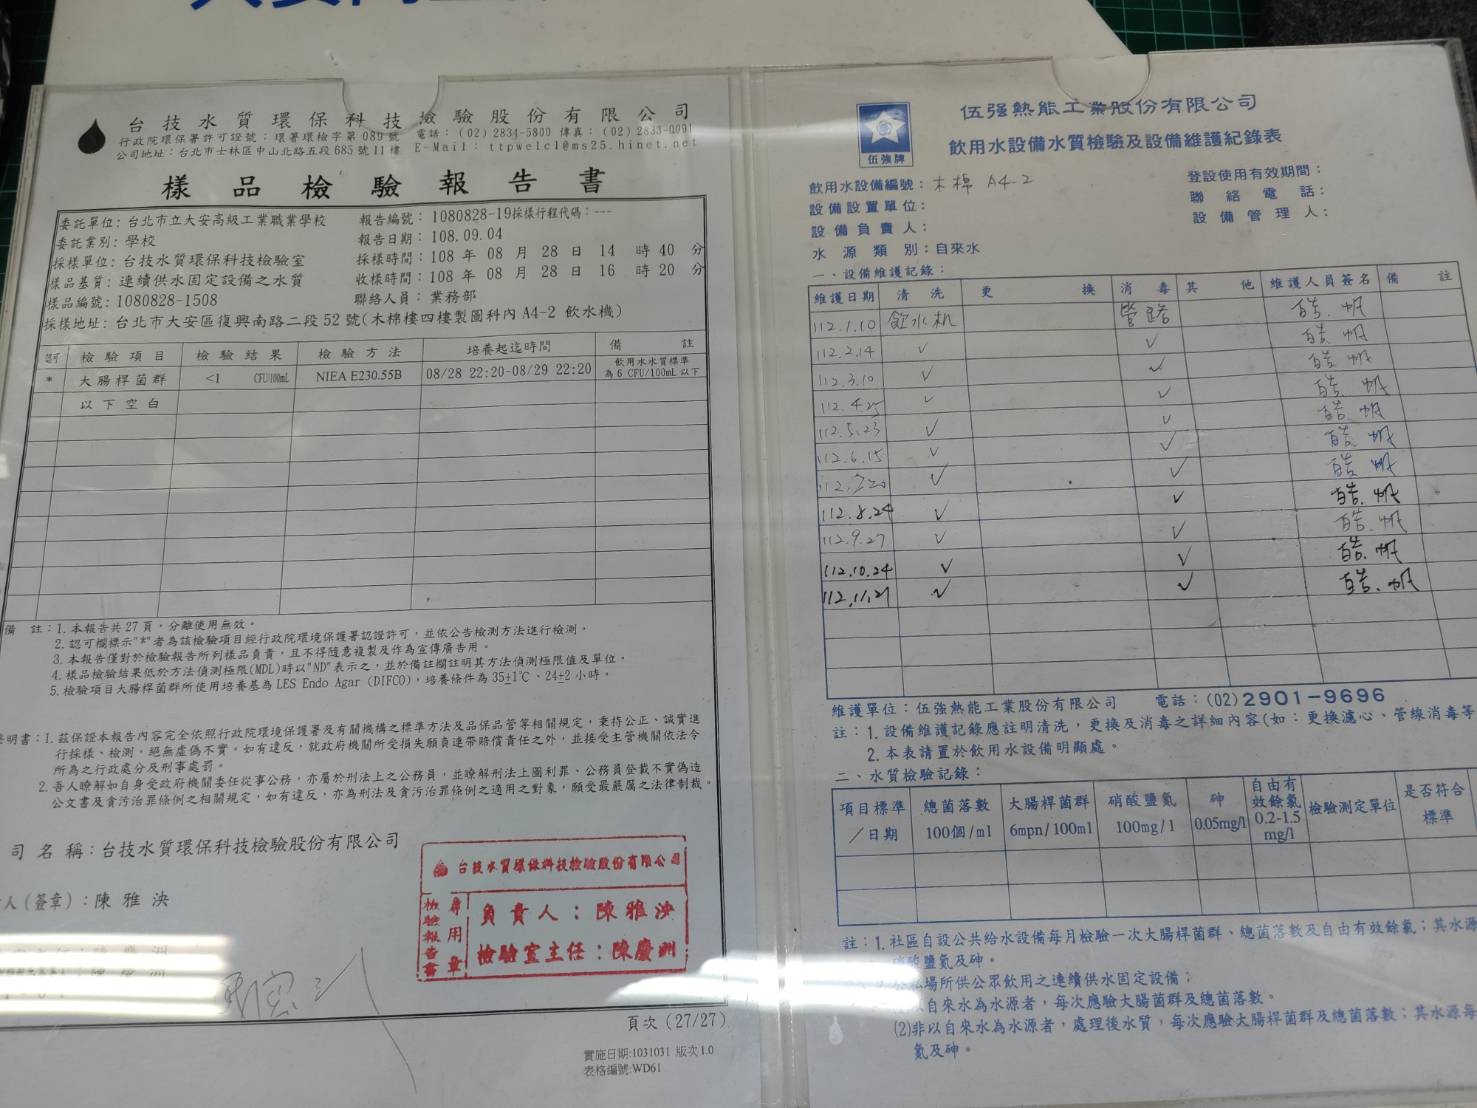 台技水質環保科技檢驗股份有限公司
行政院環保署許可證號：環署環檢字第089號 電話：(02)2834-5800 傳真：(02)2833-0091
公司地址：台北市士林區中山北路五段685號11樓 E-Mail： ttpwelcl@ms25.hinet.net
樣品檢驗報告書
委託單位：台北市立大安高級工業職業學校 報告編號：1080828-19採樣行程代碼：---
委託業別：學校 報告日期：108.09.04
採樣單位：台技水質環保科技檢驗室 採樣時間：108 年 08 月 28 日 14 時 40 分
樣品基質：連續供水固定設備之水質 收樣時間：108 年 08 月 28 日 16 時 20 分
樣品編號：1080828-1508 聯絡人員：業務部
採樣地址：台北市大安區復興南路二段52號(木棉樓四樓製圖科內 A4-2 飲水機)
認可 檢驗項目 檢驗結果 檢驗方法 培養起迄時間 備註
* 大腸桿菌群 <1 CFU/100mL NIEA E230.55B 08/28 22:20-08/29 22:20 飲用水水質標準為 6 CFU/100mL 以下
以下空白
備 註：1. 本報告共27頁，分離使用無效。
2. 認可欄標示"*"者為該檢驗項目經行政院環境保護署認證許可，並依公告檢測方法進行檢測。
3. 本報告僅對於檢驗報告所列樣品負責，且不得隨意複製及作為宣傳廣告用。
4. 樣品檢驗結果低於方法偵測極限(MDL)時以"ND"表示之，並於備註欄註明其方法偵測極限值及單位。
5. 檢驗項目大腸桿菌群所使用培養基為 LES Endo Agar (DIFCO)，培養條件為 35±1℃、24±2 小時。
明書：1. 茲保證本報告內容完全依照行政院環境保護署及有關機構之標準方法及品保品管等相關規定，秉持公正、誠實進
行採樣、檢測，絕無虛偽不實。如有違反，就政府機關所受損失願負連帶賠償責任之外，並接受主管機關依法令
所為之行政處分及刑事處罰。
2. 吾人瞭解如自身受政府機關委任從事公務，亦屬於刑法上之公務員，並瞭解刑法上圖利罪、公務員登載不實偽造
公文書及貪污治罪條例之相關規定，如有違反，亦為刑法及貪污治罪條例之適用之對象，願受最嚴厲之法律制裁。
司名稱：台技水質環保科技檢驗股份有限公司
人(簽章)：陳雅泱
台技水質環保科技檢驗股份有限公司
檢驗報告書專用章
負責人：陳雅泱
檢驗室主任：陳慶洲
頁次 (27/27)
實施日期:1031031 版次1.0
表格編號:WD61
伍強牌
伍强熱能工業股份有限公司
飲用水設備水質檢驗及設備維護紀錄表
飲用水設備編號：木棉 A4-2 登設使用有效期間：
設備設置單位： 聯絡電話：
設備負責人： 設備管理人：
水源類別：自來水
一、設備維護記錄：
維護日期 清洗 更換 消毒 其他 維護人員簽名 備註
112.1.10 飲水机 管路 皓.帆
112.2.14 ✓ ✓ 皓.帆
112.3.10 ✓ ✓ 皓.帆
112.4.25 ✓ ✓ 皓.帆
112.5.23 ✓ ✓ 皓.帆
112.6.15 ✓ ✓ 皓.帆
112.7.20 ✓ ✓ 皓.帆
112.8.24 ✓ ✓ 皓.帆
112.9.27 ✓ ✓ 皓.帆
112.10.24 ✓ ✓ 皓.帆
112.11.21 ✓ ✓ 皓.帆
維護單位：伍強熱能工業股份有限公司 電話：(02)2901-9696
註：1. 設備維護記錄應註明清洗，更換及消毒之詳細內容(如：更換濾心、管線消毒等
2. 本表請置於飲用水設備明顯處。
二、水質檢驗記錄：
項目標準／日期 總菌落數 100個/ml 大腸桿菌群 6mpn/100ml 硝酸鹽氮 100mg/l 砷 0.05mg/l 自由有效餘氯 0.2-1.5 mg/l 檢驗測定單位 是否符合標準
註：1. 社區自設公共給水設備每月檢驗一次大腸桿菌群、總菌落數及自由有效餘氯；其水源
酸鹽氮及砷。
場所供公眾飲用之連續供水固定設備；
自來水為水源者，每次應驗大腸菌群及總菌落數。
(2)非以自來水為水源者，處理後水質，每次應驗大腸桿菌群及總菌落數；其水源每
氮及砷。